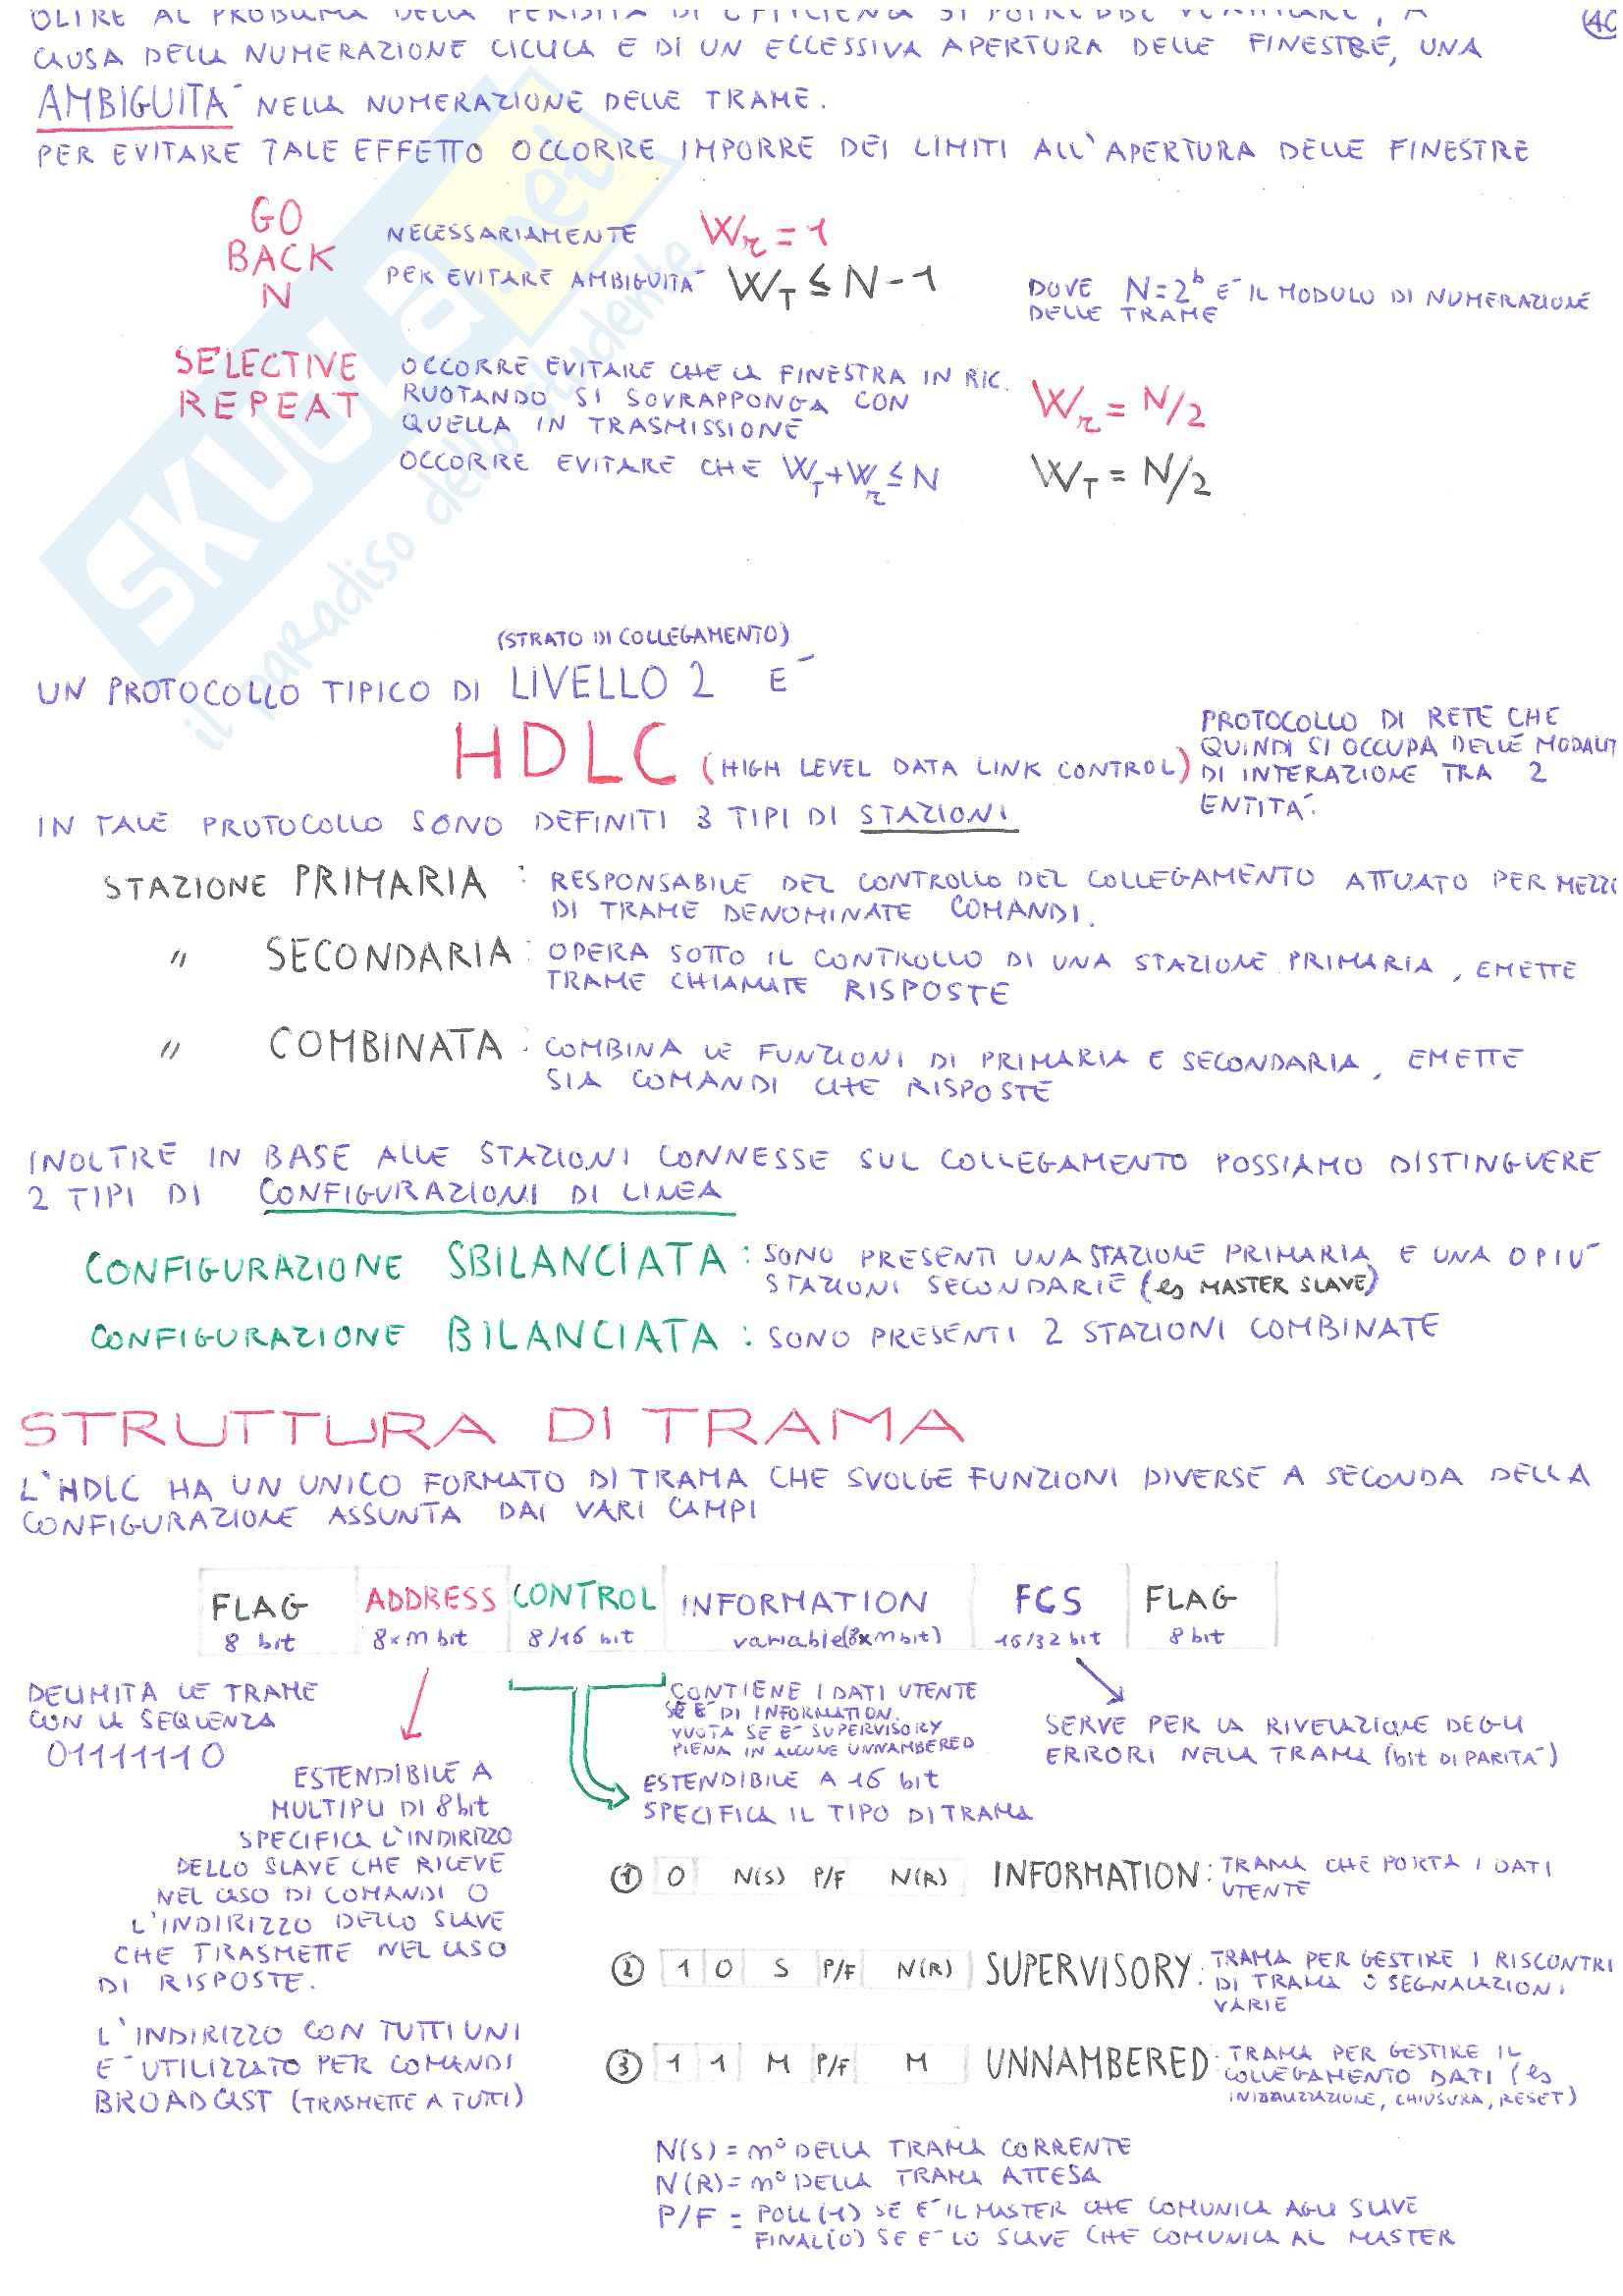 OLTRE AL PROBLEMA DELLA PERDITA DI EFFICIENZA SI POTREBBE VERIFICARE, A
CAUSA DELLA NUMERAZIONE CICLICA E DI UN ECCESSIVA APERTURA DELLE FINESTRE, UNA
AMBIGUITA' NELLA NUMERAZIONE DELLE TRAME.
PER EVITARE TALE EFFETTO OCCORRE IMPORRE DEI LIMITI ALL'APERTURA DELLE FINESTRE
GO
BACK
N
NECESSARIAMENTE Wr = 1
PER EVITARE AMBIGUITA' WT ≤ N-1
DOVE N=2^b E' IL MODULO DI NUMERAZIONE
DELLE TRAME
SELECTIVE
REPEAT
OCCORRE EVITARE CHE LA FINESTRA IN RIC.
RUOTANDO SI SOVRAPPONGA CON
QUELLA IN TRASMISSIONE
Wr = N/2
OCCORRE EVITARE CHE WT+Wr ≤ N
WT = N/2
SKUOLA.net
il paradiso dello studente
(STRATO DI COLLEGAMENTO)
UN PROTOCOLLO TIPICO DI LIVELLO 2 E'
HDLC (HIGH LEVEL DATA LINK CONTROL)
PROTOCOLLO DI RETE CHE
QUINDI SI OCCUPA DELLE MODALIT
DI INTERAZIONE TRA 2
ENTITA'.
IN TALE PROTOCOLLO SONO DEFINITI 3 TIPI DI STAZIONI
STAZIONE PRIMARIA : RESPONSABILE DEL CONTROLLO DEL COLLEGAMENTO ATTUATO PER MEZZO
DI TRAME DENOMINATE COMANDI.
" SECONDARIA : OPERA SOTTO IL CONTROLLO DI UNA STAZIONE PRIMARIA, EMETTE
TRAME CHIAMATE RISPOSTE
" COMBINATA : COMBINA LE FUNZIONI DI PRIMARIA E SECONDARIA, EMETTE
SIA COMANDI CHE RISPOSTE
INOLTRE IN BASE ALLE STAZIONI CONNESSE SUL COLLEGAMENTO POSSIAMO DISTINGUERE
2 TIPI DI CONFIGURAZIONI DI LINEA
CONFIGURAZIONE SBILANCIATA : SONO PRESENTI UNA STAZIONE PRIMARIA E UNA O PIU'
STAZIONI SECONDARIE (es MASTER SLAVE)
CONFIGURAZIONE BILANCIATA : SONO PRESENTI 2 STAZIONI COMBINATE
STRUTTURA DI TRAMA
L'HDLC HA UN UNICO FORMATO DI TRAMA CHE SVOLGE FUNZIONI DIVERSE A SECONDA DELLA
CONFIGURAZIONE ASSUNTA DAI VARI CAMPI
FLAG ADDRESS CONTROL INFORMATION FCS FLAG
8 bit 8xm bit 8/16 bit variable(8xm bit) 16/32 bit 8 bit
DELIMITA LE TRAME
CON LA SEQUENZA
01111110
ESTENDIBILE A
MULTIPLI DI 8 bit
SPECIFICA L'INDIRIZZO
DELLO SLAVE CHE RICEVE
NEL CASO DI COMANDI O
L'INDIRIZZO DELLO SLAVE
CHE TRASMETTE NEL CASO
DI RISPOSTE.
L'INDIRIZZO CON TUTTI UNI
E' UTILIZZATO PER COMANDI
BROADCAST (TRASMETTE A TUTTI)
CONTIENE I DATI UTENTE
SE E' DI INFORMATION.
VUOTA SE E' SUPERVISORY
PIENA IN ALCUNE UNNAMBERED
ESTENDIBILE A 16 bit
SPECIFICA IL TIPO DI TRAMA
SERVE PER LA RIVELAZIONE DEGLI
ERRORI NELLA TRAMA (bit DI PARITA')
1 0 N(S) P/F N(R) INFORMATION : TRAMA CHE PORTA I DATI
UTENTE
2 1 0 S P/F N(R) SUPERVISORY : TRAMA PER GESTIRE I RISCONTRI
DI TRAMA O SEGNALAZIONI
VARIE
3 1 1 M P/F M UNNAMBERED : TRAMA PER GESTIRE IL
COLLEGAMENTO DATI (es
INIZIALIZZAZIONE, CHIUSURA, RESET)
N(S) = n° DELLA TRAMA CORRENTE
N(R) = n° DELLA TRAMA ATTESA
P/F = POLL(1) SE E' IL MASTER CHE COMUNICA AGLI SLAVE
FINAL(0) SE E' LO SLAVE CHE COMUNICA AL MASTER